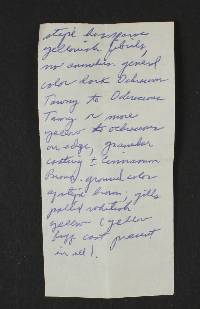 stipe has sparse
yellowish fibrils,
no annulus. general
color dark Ochraceous
Tawny to Ochraceous
Tawny or more
yellow to ochraceous
on edge, granular
coating ± Cinnamon
ground color
apstipe brown; gills
pallid whitish
yellow (yellow
buff cast present
in all).